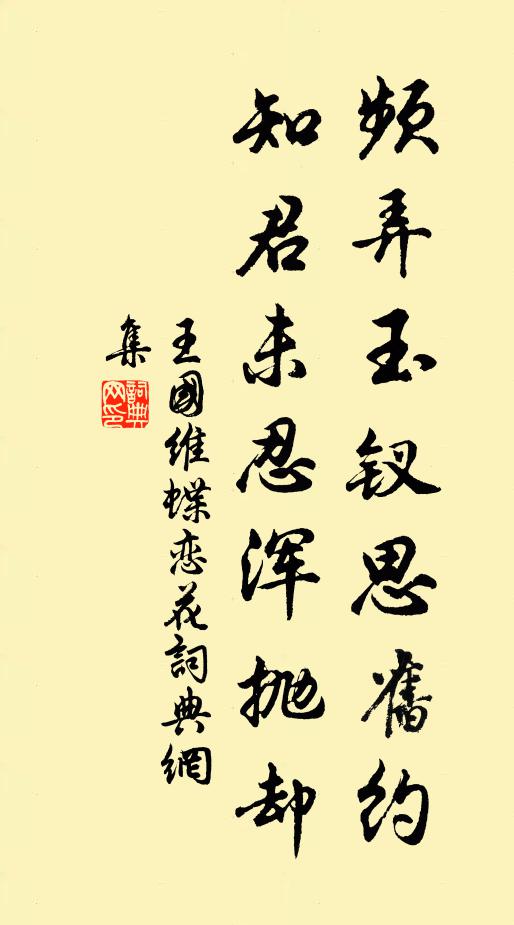 频弄玉钗思舊约
知君未忍浑抛却
王國维蝶恋花詞典網
集
詞典网印